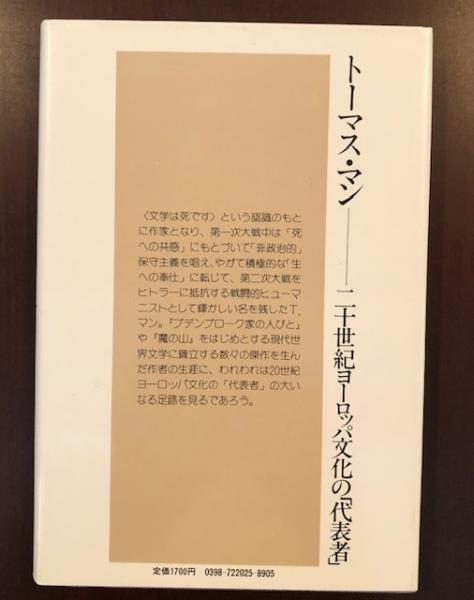 トーマス・マン——二十世紀ヨーロッパ文化の「代表者」
〈文学は死です〉という認識のもと
に作家となり、第一次大戦中は「死
への共感」にもとづいて「非政治的」
保守主義を唱え、やがて積極的な「生
への奉仕」に転じて、第二次大戦を
ヒトラーに抵抗する戦闘的ヒューマ
ニストとして輝かしい名を残したT.
マン。『ブデンブローク家の人びと』
や『魔の山』をはじめとする現代世
界文学に聳立する数々の傑作を生ん
だ作者の生涯に、われわれは20世紀
ヨーロッパ文化の「代表者」の大い
なる足跡を見るであろう。
定価1700円 0398-722025-8905